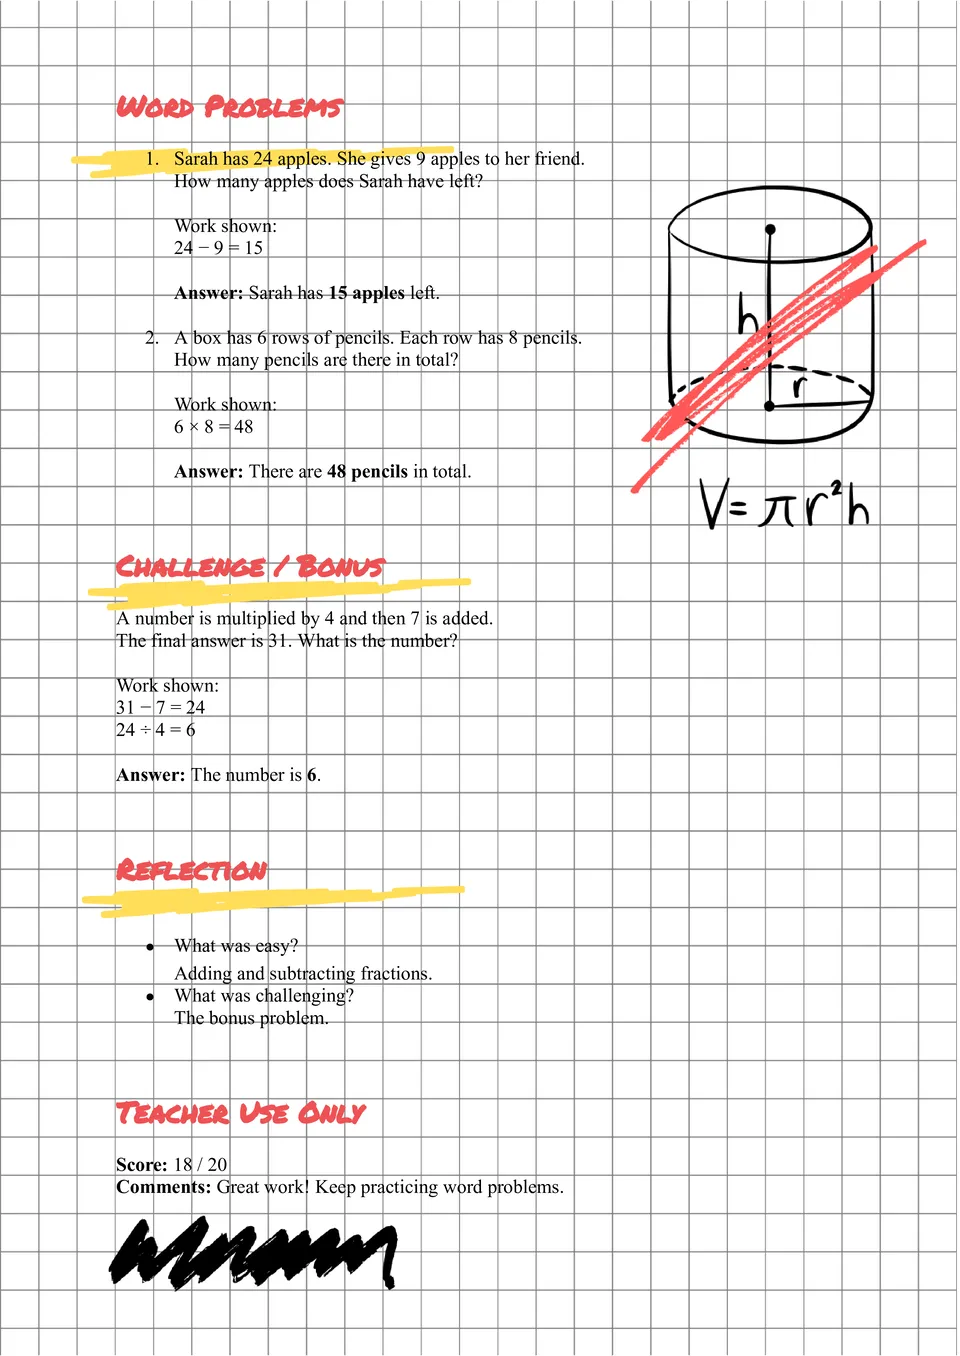 Word Problems
1. Sarah has 24 apples. She gives 9 apples to her friend.
How many apples does Sarah have left?
Work shown:
24 − 9 = 15
Answer: Sarah has 15 apples left.
2. A box has 6 rows of pencils. Each row has 8 pencils.
How many pencils are there in total?
Work shown:
6 × 8 = 48
Answer: There are 48 pencils in total.
h
r
V = πr²h
Challenge / Bonus
A number is multiplied by 4 and then 7 is added.
The final answer is 31. What is the number?
Work shown:
31 − 7 = 24
24 ÷ 4 = 6
Answer: The number is 6.
Reflection
• What was easy?
Adding and subtracting fractions.
• What was challenging?
The bonus problem.
Teacher Use Only
Score: 18 / 20
Comments: Great work! Keep practicing word problems.